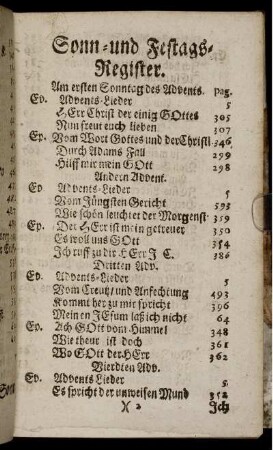 Sonn- und Festags-
Register.
Am ersten Sonntag des Advents. pag.
Ev. Advents-Lieder 5
HErr Christ der einig GOttes 305
Nun freut euch lieben 307
Ep. Vom Wort Gottes und der Christl. 346
Durch Adams Fall 299
Hilff mir mein GOtt 298
Andern Advent.
Ev Advents-Lieder 5
Vom Jüngsten Gericht 595
Wie schön leuchtet der Morgenst. 359
Ep. Der HErr ist mein getreuer 350
Es woll uns GOtt 354
Ich ruff zu dir HErr J C. 386
Dritten Adv.
Ev. Advents-Lieder 5
Vom Creutz und Anfechtung 493
Kommt her zu mir spricht 396
Meinen JEsum laß ich nicht 64
Ep. Ach GOtt vom Himmel 348
Wie theur ist doch 361
Wo GOtt der HErr 362
Vierdten Adv.
Ev. Advents Lieder 5
Es spricht der unweisen Mund 352
X 2 Ich